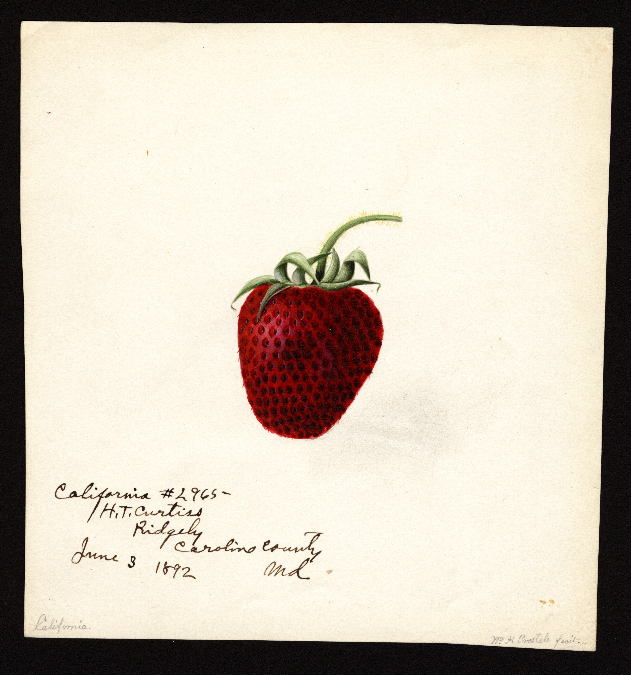 California #2965-
H.T. Curtiss
Ridgely
Caroline County
June 3 1892 Md
California.
Wm H Prestele fecit.